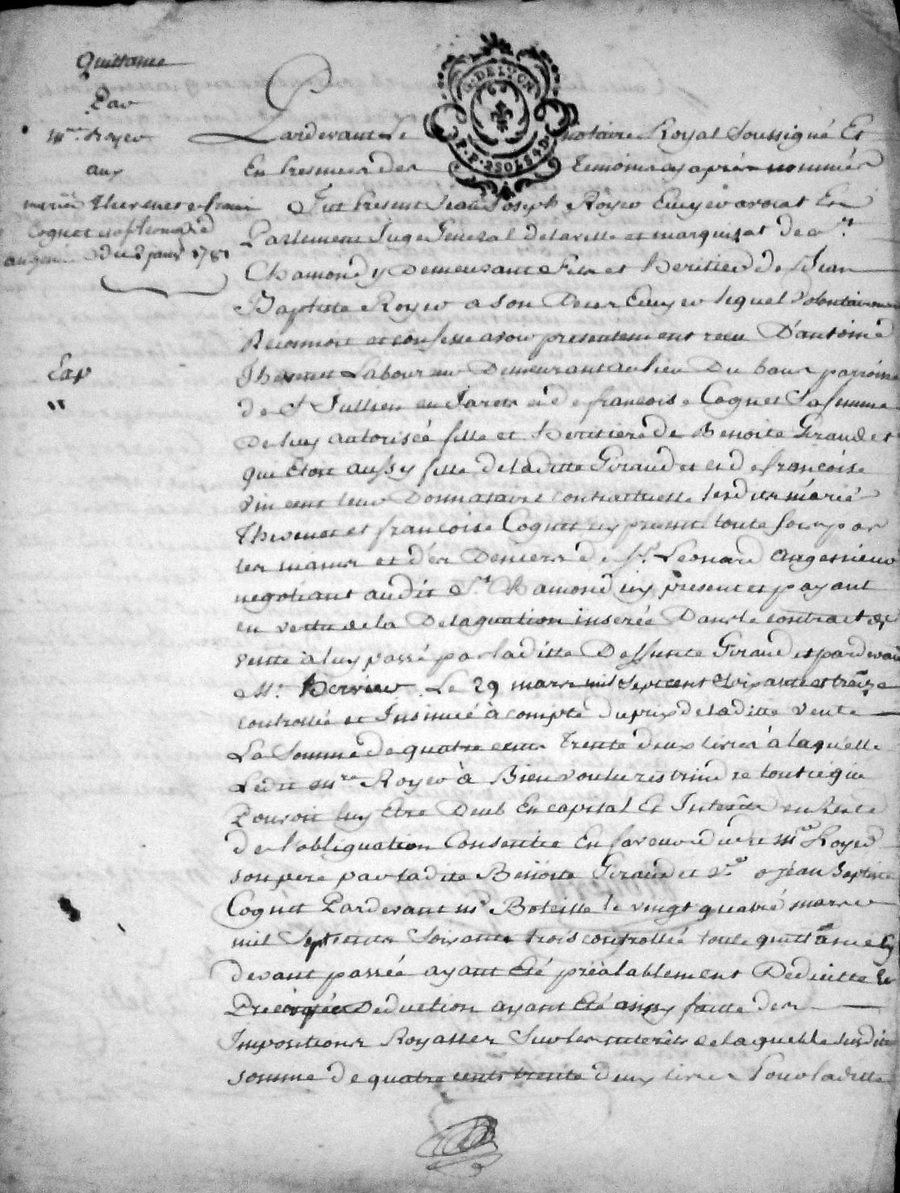 Quittance
Par
Mre Royer
aux
mariés Thevenet et françoise
Coquet et sr Leonard
angenieux Du 8 janv 1781
Exp
G. DE LYON
P. P. 2 SOLS 4 D.
Pardevant Le notaire Royal Soussigné Et
En Presence des temoins cy après nommés
Fut Present Jean Joseph Royer Ecuyer avocat En
Parlement Juge General de la ville et marquizat de St
Chamond y Demeurant Fils et heritier de Jean
Baptiste Royer a son Deces Ecuyer lequel Volontairement
Reconnoit et confesse avoir presentement recu D'antoine
Thevenet Laboureur Demeurant au lieu Du banc parroisse
de St Jullien en Jarets et de francoise Coquet Sa femme
De luy autorisée fille et heritiere de Benoite Giraud et
que Etoit aussy fille de laditte Giraud et et de francoise
Vincent leur Donnataire contractuelle lesdits mariés
Thevenet et francoise Coquet icy present toute fois par
les mains et des Deniers de Sr Leonard angenieux
negotiant audit St Chamond icy present et payant
en vertu de la Delaguation inserée Dans le contract de
vente à luy passé par laditte Deffunte Giraud et pardevant
Me hervier Le 29 mars mil sept cent soixante et treize
controllée et Insinuée à compte du prix de laditte Vente
La Somme de quatre cents trente deux livres à laquelle
Ledit mre Royer à Bien voulu restraindre tout ce qui
Pouvoit luy Etre Deub En capital Et Interets en Reste
de l'obliguation Consentie En faveur dudit mre Royer
son pere par ladite Benoite Giraud et Jean Baptiste
Coquet Pardevant me Boteille le vingt quatre mars
mil Sept cents Soixante trois controllée toute quittance Cy
devant passée ayant Eté préalablement Deduitte Et
Precomptée Deduction ayant Eté aussy faitte des
Impositions Royalles Sur les interêts de laquelle susdite
somme de quatre cents trente deux livres Pour laditte